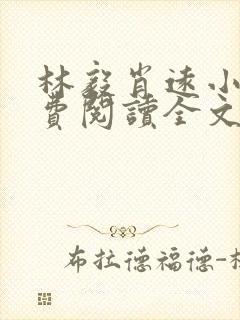 林毅肖遠小
費閱讀全文
布拉德福德-杜